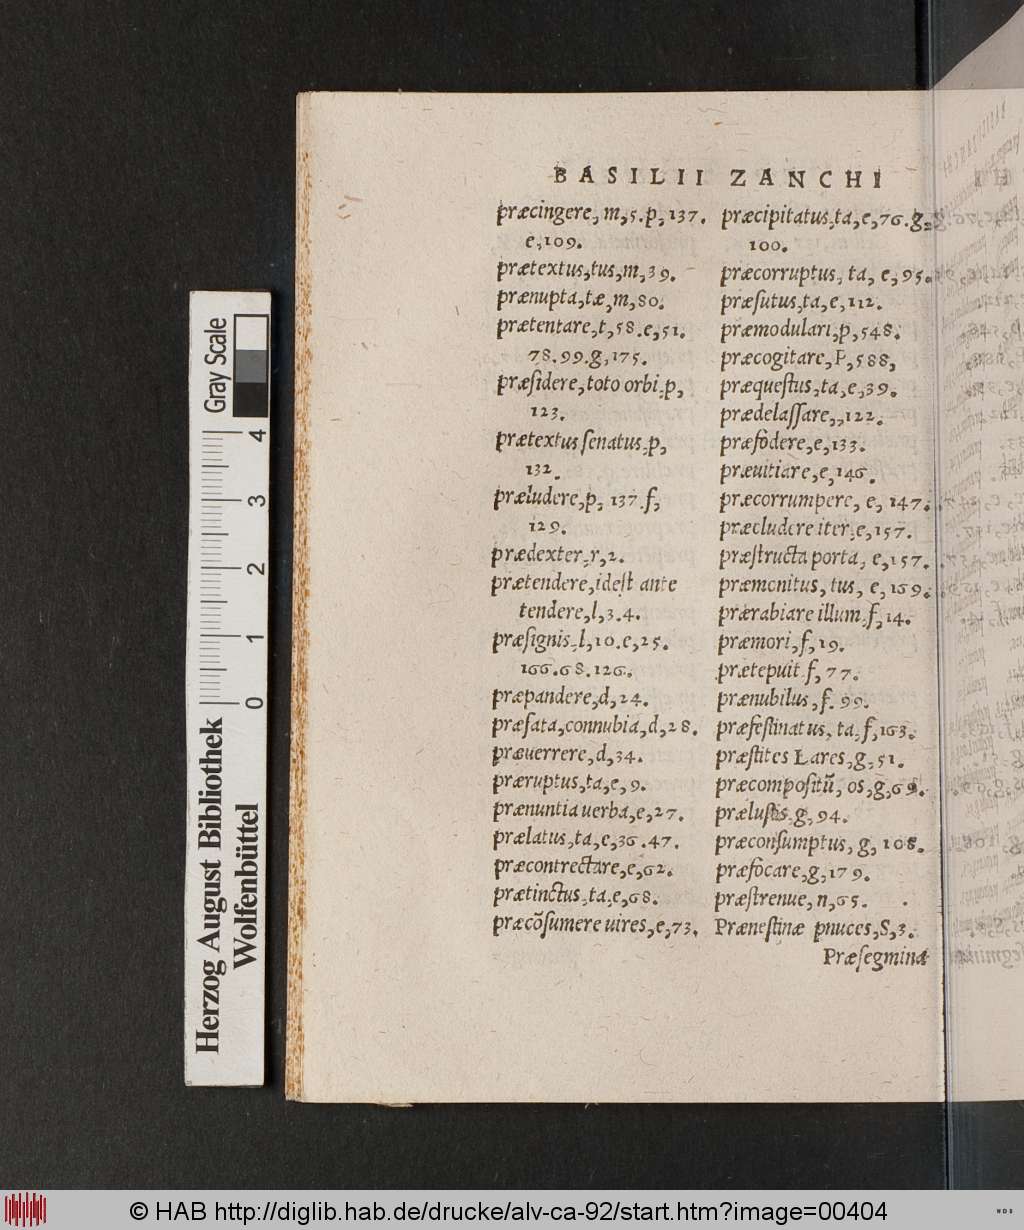 BASILII ZANCHI
præcingere, m, 5. p, 137.
e, 109.
prætextus, tus, m, 39.
prænupta, tæ, m, 80.
prætentare, t, 58. e, 51.
78. 99. g, 175.
præsidere, toto orbi, p,
123.
prætextus senatus, p,
132.
præludere, p, 137. f,
129.
prædexter, r, 2.
prætendere, idest ante
tendere, l, 3. 4.
præsignis, l, 10. e, 25.
166. 68. 126.
præpandere, d, 24.
præfata, connubia, d, 28.
præuerrere, d, 34.
præruptus, ta, e, 9.
prænuntia uerba, e, 27.
prælatus, ta, e, 36. 47.
præcontrectare, e, 62.
prætinctus, ta, e, 68.
præcõsumere uires, e, 73.
præcipitatus, ta, e, 76. g,
100.
præcorruptus, ta, e, 95.
præsutus, ta, e, 112.
præmodulari, p, 548.
præcogitare, P, 588,
præquestus, ta, e, 39.
prædelassare,, 122.
præfodere, e, 133.
præuitiare, e, 146.
præcorrumpere, e, 147.
præcludere iter, e, 157.
præstructa porta, e, 157.
præmonitus, tus, e, 169.
prærabiare illum, f, 14.
præmori, f, 19.
prætepuit f, 77.
prænubilus, f. 99.
præfestinatus, ta, f, 163.
præstites Lares, g, 51.
præcompositũ, os, g, 69.
prælustis g, 94.
præconsumptus, g, 108.
præfocare, g, 179.
præstrenue, n, 65.
Prænestinæ pnuces, S, 3.
Præsegmina
Herzog August Bibliothek
Wolfenbüttel
0 1 2 3 4
Gray Scale
© HAB http://diglib.hab.de/drucke/alv-ca-92/start.htm?image=00404